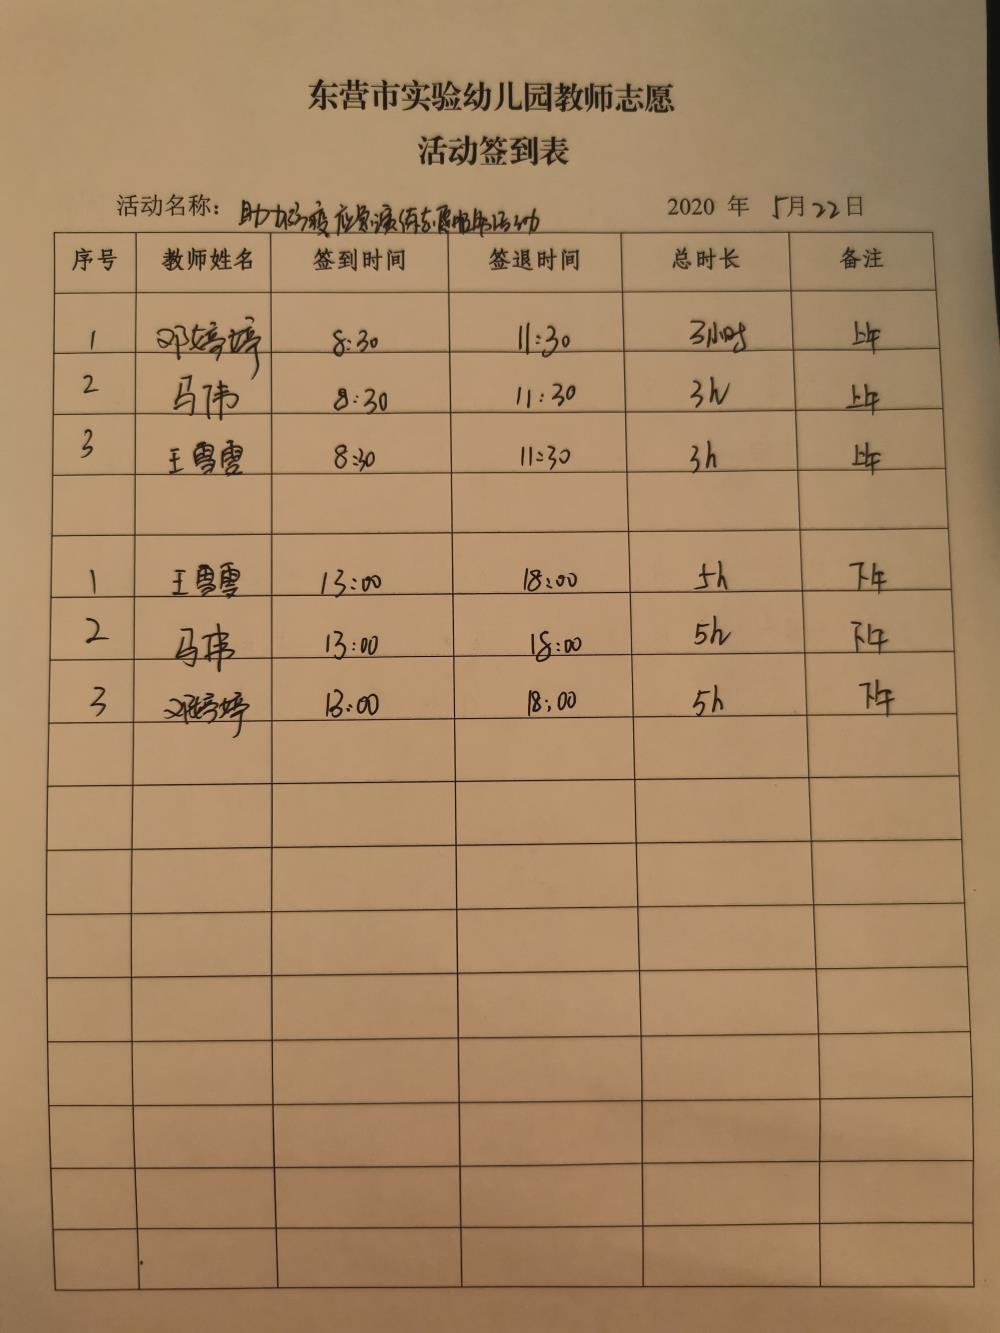 东营市实验幼儿园教师志愿
活动签到表
活动名称： 助力防疫应急演练志愿服务活动 2020 年 5月22日
序号 教师姓名 签到时间 签退时间 总时长 备注
1 邓婷婷 8:30 11:30 3小时 上午
2 马伟 8:30 11:30 3h 上午
3 王雪雯 8:30 11:30 3h 上午
1 王雪雯 13:00 18:00 5h 下午
2 马伟 13:00 18:00 5h 下午
3 邓婷婷 13:00 18:00 5h 下午